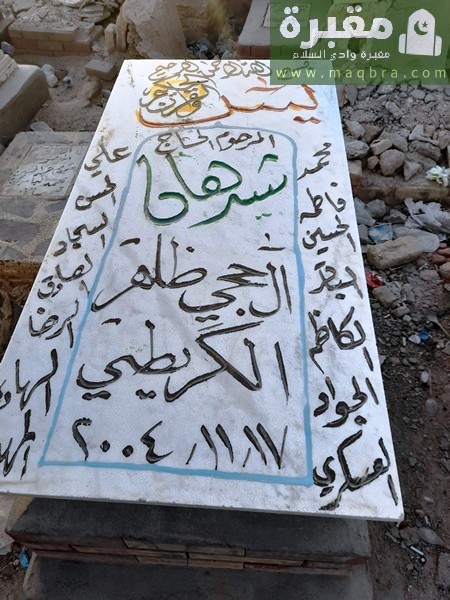 مقبرة
مقبرة وادي السلام
www.maqbra.com
يس
المرحوم الحاج
شرهان
ال حجي ظاهر
الكريطي
٢٠٠٤.١١.١٧
محمد
فاطمه
الحسين
الباقر
الكاظم
الجواد
العسكري
علي
الحسن
السجاد
الصادق
الرضا
الهادي
المهدي